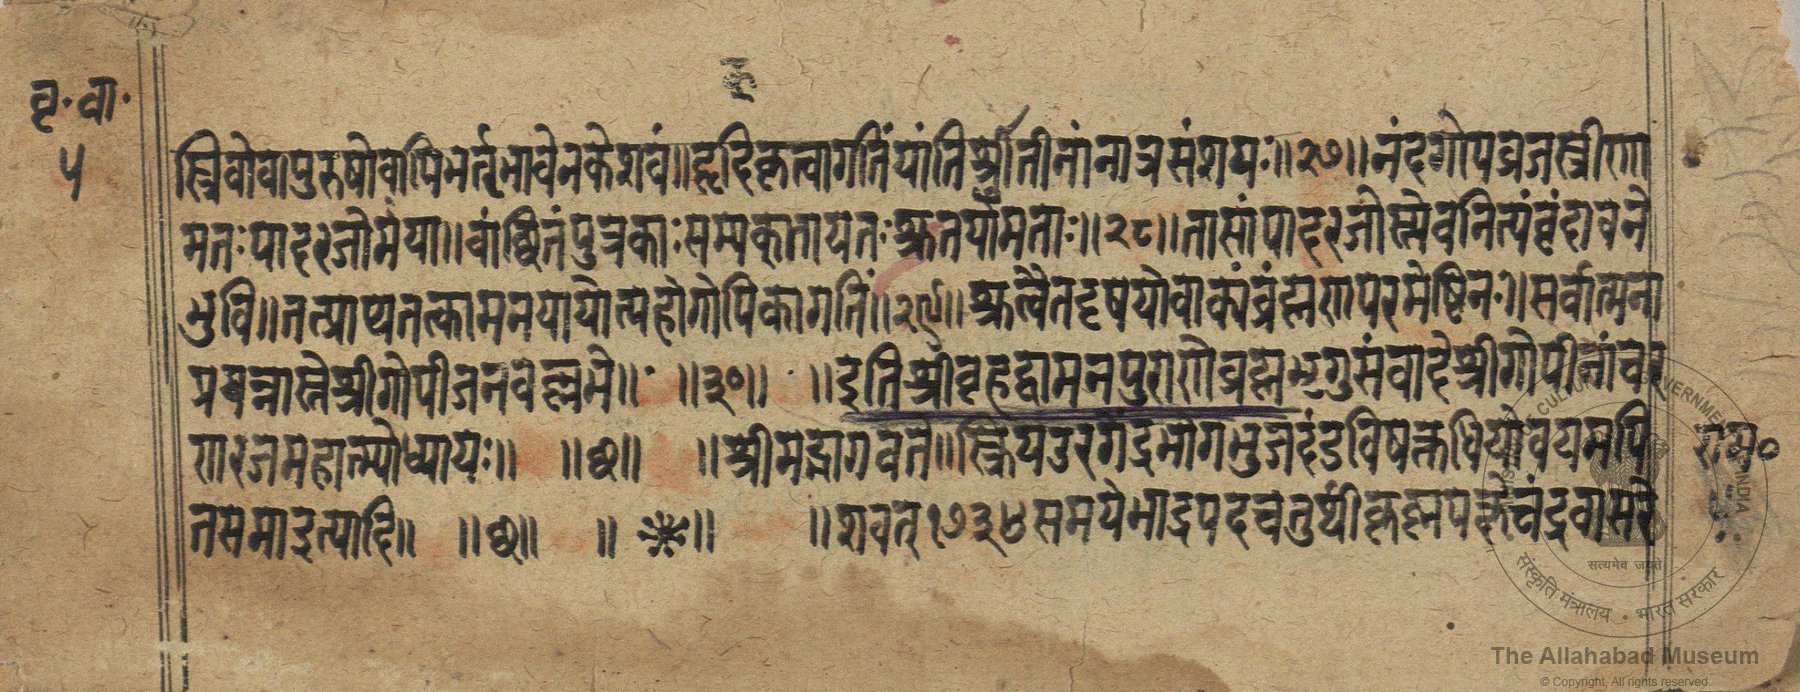 वृ॰वा॰
५
स्त्रियोवापुरुषोवापिभर्तृभावेनकेशवं॥हृदिकृत्वागतिंयांतिश्रुतीनांनात्रसंशयः॥२७॥नंदगोपव्रजस्त्रीणा
मतःपादरजोमया॥वांछितंपुत्रकाःसम्यक्तायतःश्रुतयोमताः॥२८॥तासांपादरजोस्मेवनित्यंवृंदावने
भुवि॥तत्प्राप्यतत्कामनयायायोत्यहोगोपिकागतिं॥२९॥श्रुत्वैतदृषयोवाक्यंब्रंह्मणपरमेष्टिनः॥सर्वात्मना
प्रपन्नास्तेश्रीगोपीजनवल्लभे॥ ॥३०॥ ॥इतिश्रीवृहद्वामनपुराणेब्रह्मभृगुसंवादेश्रीगोपीनांचर
णरजमहात्म्योध्यायः॥ ॥छ॥ ॥श्रीमद्भागवते॥स्त्रियउरगेंद्रभोगभुजदंडविषक्तधियोवयमपि
राम॰
तसमाइत्यादि॥ ॥छ॥ ॥ ॥ ॥शवत्१७३४समयेभाद्रपदचतुर्थीकृह्मपक्षचंद्रवासरे
सत्यमेव जयते
संस्कृति मंत्रालय • भारत सरकार
The Allahabad Museum
© Copyright, All rights reserved.